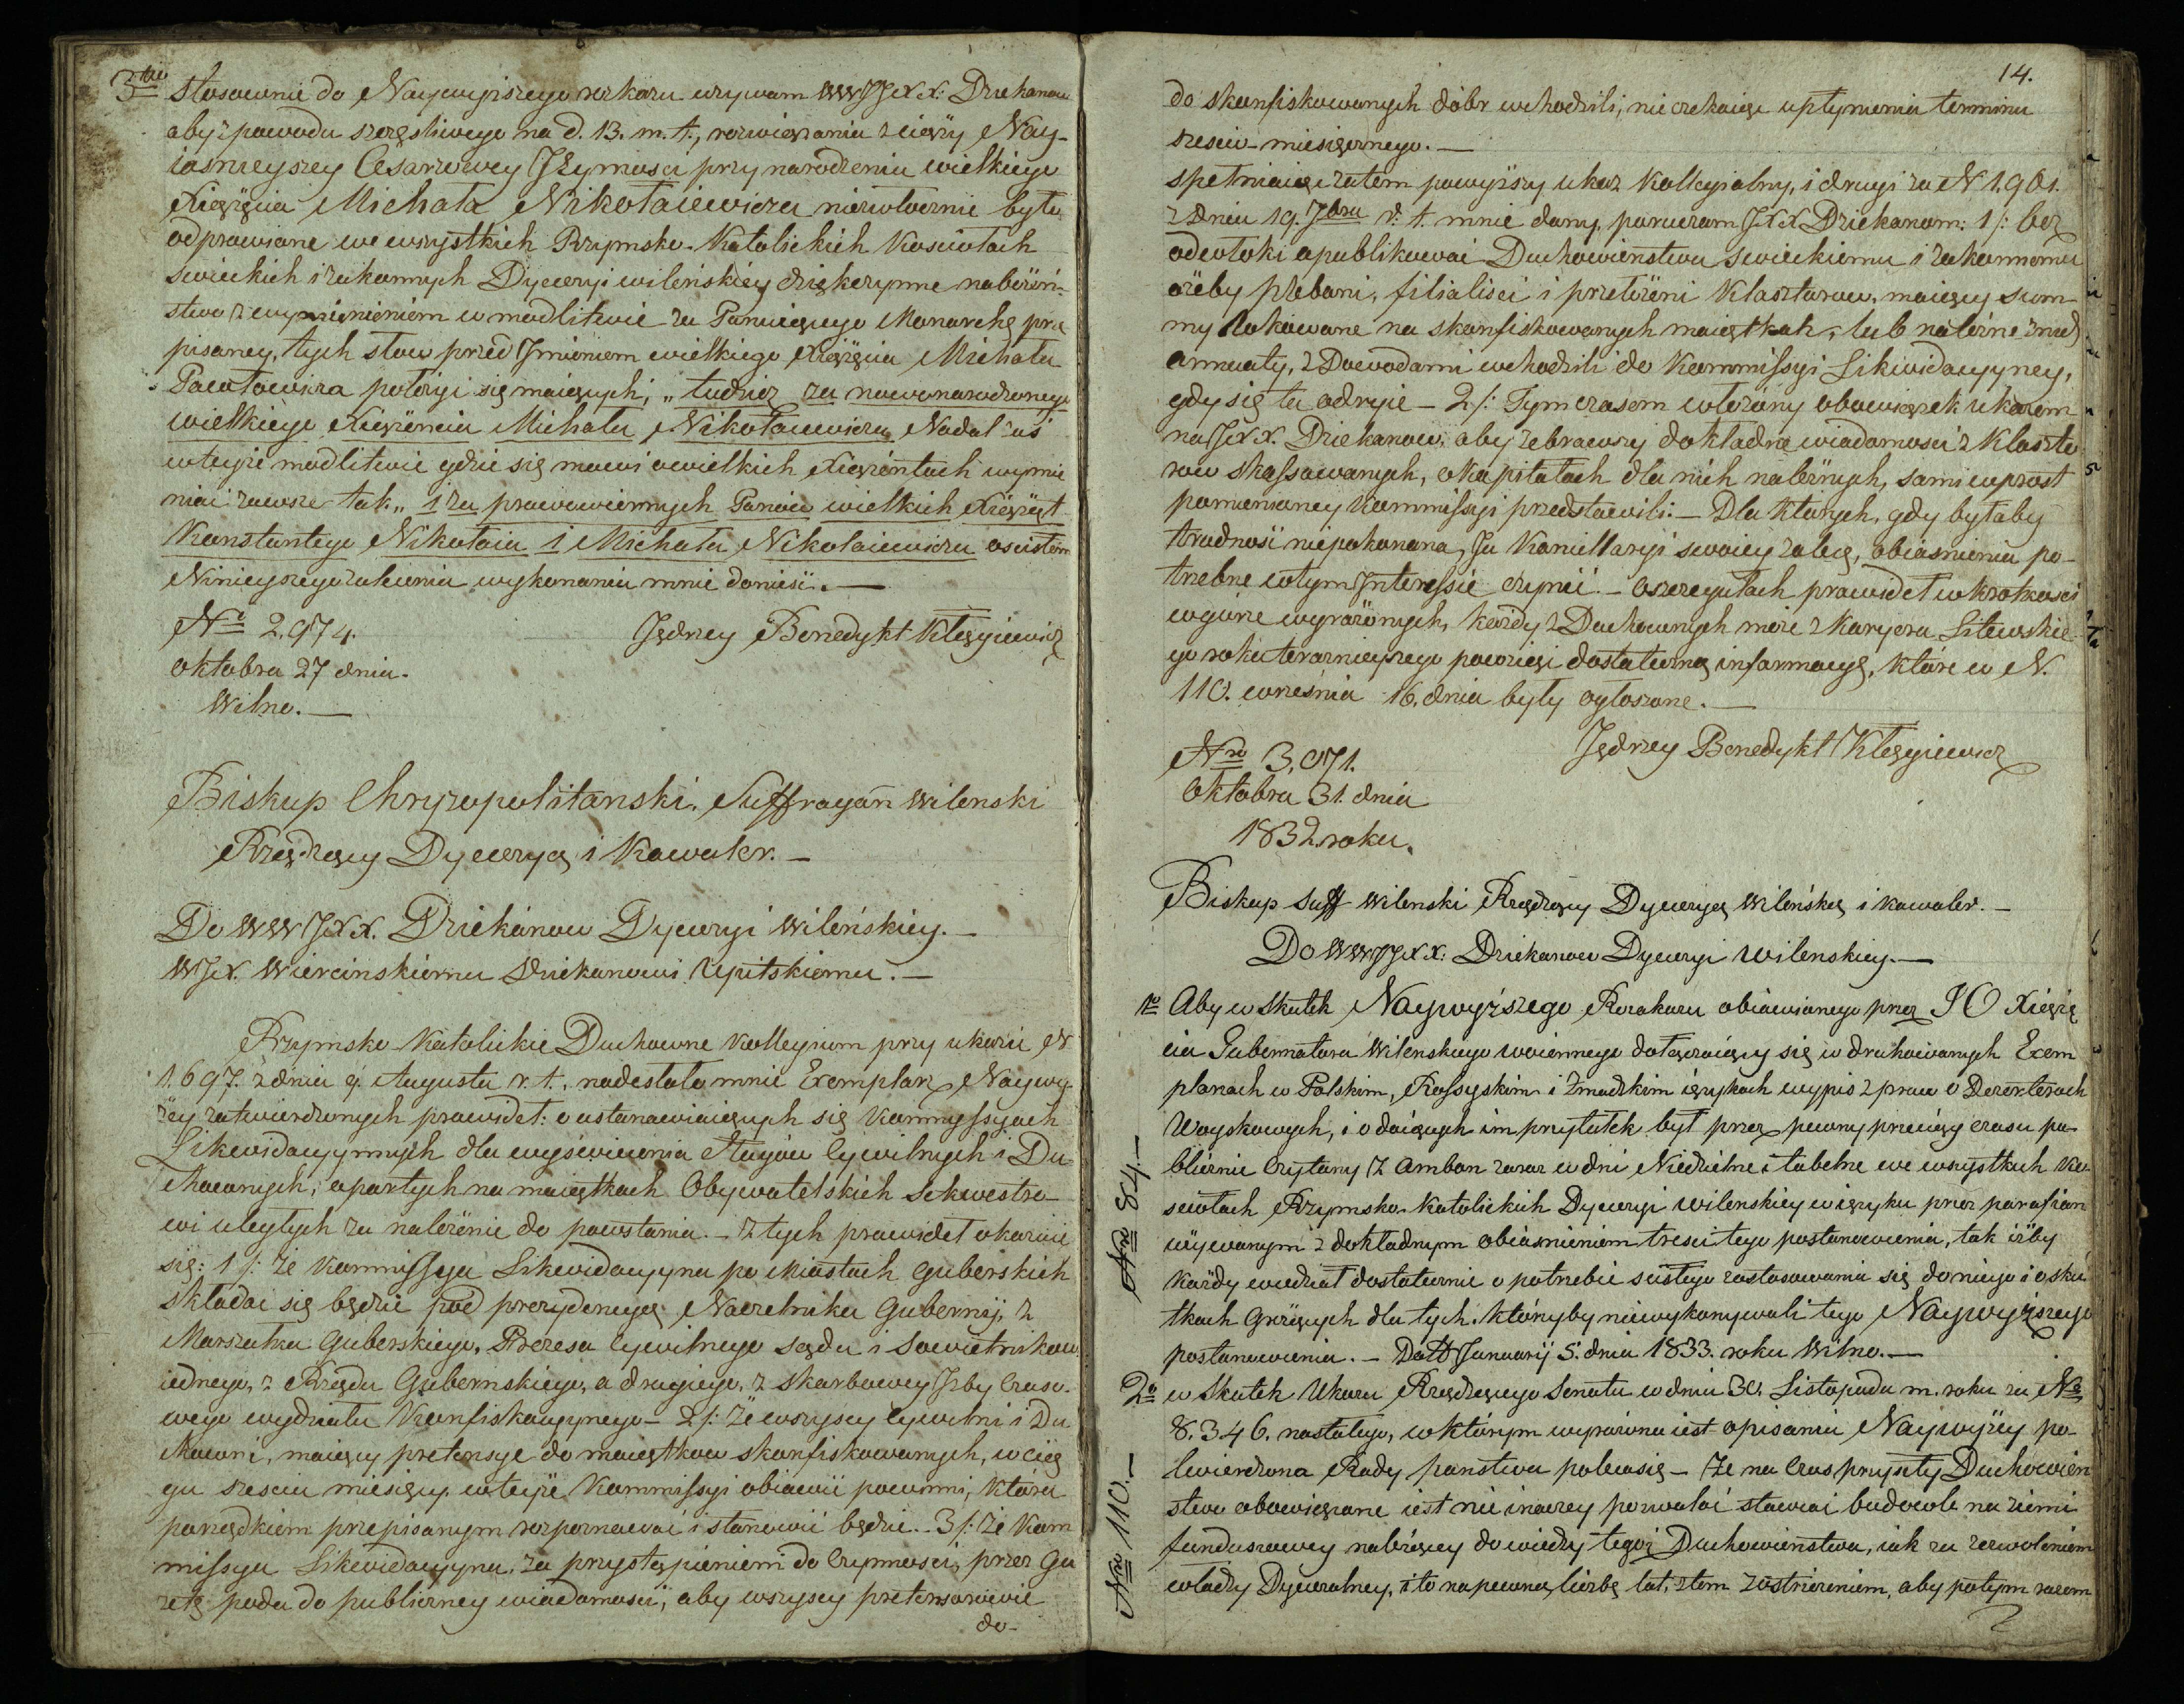 3tio Stosownie do Naywyższego rozkazu wzywam WWJJXX: Dziekanow
aby z powodu szczęśliwego na d. 13. m. t., rozwiązania z ciąży Nay-
iasnieyszey Cesarzowey Jżymosci przy narodzeniu wielkiego
Xiążęcia Michała Nikołaiewicza niezwłocznie było
odprawione we wszystkich Rzymsko-Katolickich Kosciołach
swieckich i zakonnych Dyecezyi wilenśkiey dziękczynne nabożeń-
stwo z wymienieniem w modlitwie za Panuiącego Monarchę prze
pisaney, tych słow przed Jmieniem wielkiego Xiążęcia Michała
Pawłowicza położyć się maiących, „tudzież za nowonarodzonego
wielkiego Xiążęcia Michała Nikołaiewicza Nadal zaś
w teyże modlitwie gdzie się mowi o wielkich Xiążętach wymie
niać zawsze tak „i za prawowiernych Panow wielkich Xiążąt
Konstantego Nikołaia i Michała Nikołaiewicza o scisłem
Ninieyszego zalecenia wykonaniu mnie donieść. —
Nr 2,974. Jędrzey Benedykt Kłągiewicz
oktobra 27 dnia.
Wilno. —
Biskup Chryzopolitanski, Suffragan Wilenski
Rządzący Dyecezyą i Kawaler. —
Do WWJXX. Dziekanow Dyecezyi Wilenśkiey. —
WJX. Wiercinskiemu Dziekanowi Upitskiemu. —
Rzymsko Katolickie Duchowne Kollegium przy ukazie N
1.697. z dnia 9. Augusta r. t., nadesłało mnie Exemplarz Naywy-
żey zatwierdzonych prawideł: o ustanawiaiących się Kommyssyach
Likwidacyynych dla wyswiecenia długow Cywilnych i Du
chownych, opartych na maiątkach Obywatelskich Sekwestro-
wi uległych za należenie do powstania. — Z tych prawideł okazuie
się: 1/: że Kommissya Likwidacyyna po Miastach guberskich
składać się będzie pod prezydencyą Naczelnika Gubernij, z
Marszałka Guberskiego, Prezesa Cywilnego sądu i Sowietnikow
iednego, z Rządu Gubernskiego, a drugiego, z Skarbowey Jzby Czaso-
wego wydziału Konfiskacyynego — 2/: że wszyscy Cywilni i Du
chowni, maiący pretensye do maiątkow skonfiskowanych, w cią
gu szesciu miesięcy w teyże Kommissyi obiawić powinni, która
porządkiem przepisanym rozpoznawać i stanowić będzie. — 3/: że Kom
missya Likwidacyyna, za przystąpieniem do Czynnosci, przez Ga
zetę poda do publiczney wiadomosci, aby wszyscy pretensorowie
do-
14.
do skonfiskowanych dobr wchodzili, nie czekaiąc upłynienia terminu
szescio-miesięcznego. —
spełniaiąc zatem powyższy ukaz Kollegialny, i drugi za N 1,961.
z dnia 19. 7bra r. t. mnie dany, poruczam JXX Dziekanom: 1/: bez
odwłoki opublikować Duchowieństwu Swieckiemu i zakonnemu
ażeby plebani, filialisci i przełożeni Klasztorow, maiący sum-
my lokowane na skonfiskowanych maiątkach, lub należne z nich
annuaty, z Dowodami wchodzili do Kommissyi Likwidacyyney,
gdy się ta odkryie — 2/: Tymczasem włożony obowiązek ukazem
na JXX. Dziekanow, aby zebrawszy dokładną wiadomość z Klaszto
row skassowanych, o kapitałach dla nich należnych, sami wprost
pomienioney Kommissyi przedstawili: — Dla których, gdy byłaby
trudność niepokonana, Ja Kancellaryi swoiey zalecę, obiasnienia po-
trzebne w tym Jnteressie czynić. — O szczegułach prawideł w krotkosci
w gurze wyrażonych, każdy z Duchownych może z Kuryera Litewskie-
go roku terazniejszego powziąść dostateczną informacyą, które w N.
110. września 16. dnia były ogłoszone. —
Nro 3,071. Jędrzey Benedykt Kłągiewicz
Oktobra 31. dnia
1832 roku.
Biskup Suff Wilenski Rządzący Dyecezyą Wilenśką i Kawaler. —
Do WWJJXX: Dziekanow Dyecezyi Wilenskiey. —
1o Aby w skutek Naywyższego Rozkazu obiawionego przez JO Xiążę
cia Gubernatora Wilenskiego woiennego dołączaiący się w drukowanych Exem
plarzach w Polskim, Rossyskim i Zmudzkim ięzykach wypis z praw o Dezerterach
Woyskowych, i o daiących im przytułek był przez pewny przeciąg czasu pu-
blicznie Czytany z Ambon zaraz w dni Niedzielne i tabelne we wszystkich Ko-
sciołach Rzymsko-Katolickich Dyecezyi Wilenskiey w ięzyku przez parafian
używanym z dokładnym obiasnieniem tresci tego postanowienia, tak iżby
każdy wiedział dostatecznie o potrzebie scisłego zastosowania się do niego i o sku
tkach Grożących dla tych, którzyby niewykonywali tego Naywyższego
postanowienia. — Datt Januarij 5. dnia 1833. roku Wilno. —
Nro 84. —
2o w Skutek Ukazu Rządzącego Senatu w dniu 30. Listopada m. roku za No
8,346. nastałego, w którym wyrażona iest opisanu Naywyżey po-
twierdzona Rady panstwa poleca się — że na Czas przyszły Duchowien
stwo obowiązane iest nie inaczey pozwalać stawiać budowle na ziemi
funduszowey należącey do wiedzy tegoż Duchowieństwa, iak za zezwoleniem
władzy Dyecezalney, i to na pewną liczbę lat, z tem zastrzeżeniem, aby potym razem
Nro 110. —